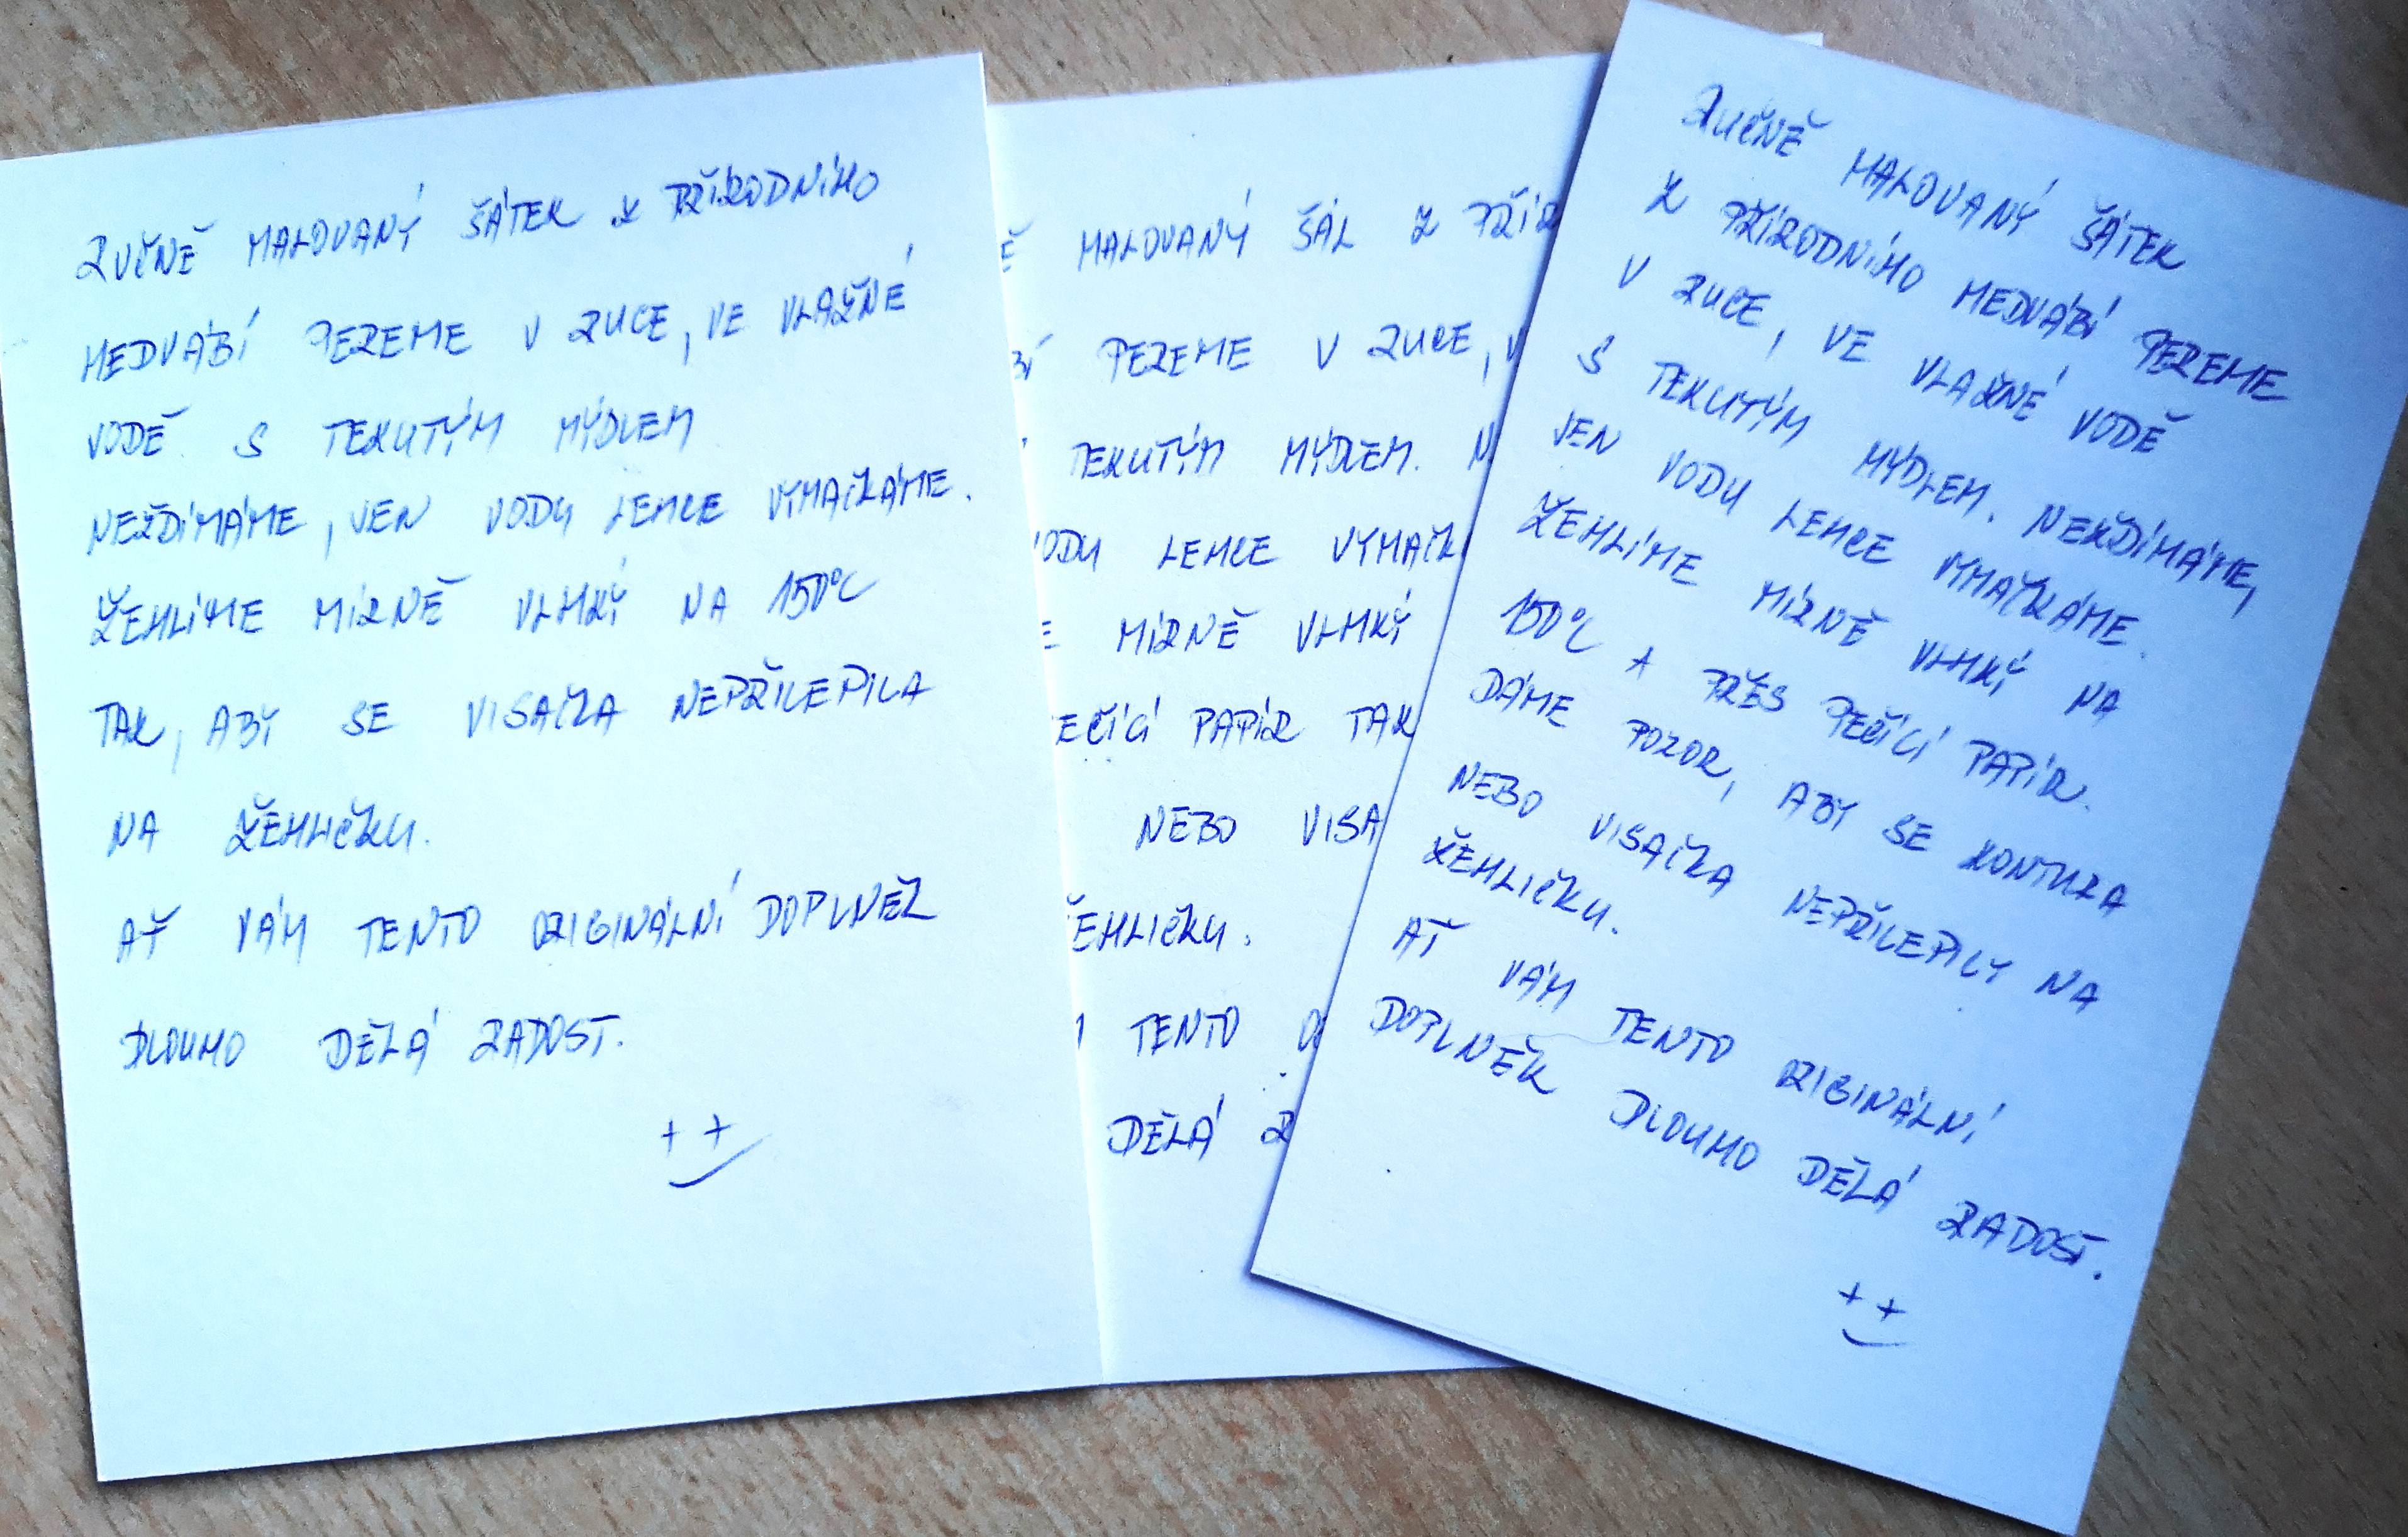 RUČNĚ MALOVANÝ ŠÁTEK Z PŘÍRODNÍHO
HEDVÁBÍ PEREME V RUCE, VE VLAŽNÉ
VODĚ S TEKUTÝM MÝDLEM
NEŽDÍMÁME, JEN VODU LEHCE VYMAČKÁME.
ŽEHLÍME MÍRNĚ VLHKÝ NA 150°C
TAK, ABY SE VISAČKA NEPŘILEPILA
NA ŽEHLIČKU.
AŤ VÁM TENTO ORIGINÁLNÍ DOPLNĚK
DLOUHO DĚLÁ RADOST.
Ě MALOVANÝ ŠÁL Z PŘÍR
BÍ PEREME V RUCE, V
TEKUTÝM MÝDLEM. N
VODU LEHCE VYMAČK
E MÍRNĚ VLHKÝ
EČÍCÍ PAPÍR TAK
NEBO VISA
ŽEHLIČKU.
TENTO O
DĚLÁ R
RUČNĚ MALOVANÝ ŠÁTEK
Z PŘÍRODNÍHO HEDVÁBÍ PEREME
V RUCE, VE VLAŽNÉ VODĚ
S TEKUTÝM MÝDLEM. NEŽDÍMÁME,
JEN VODU LEHCE VMAČKÁME.
ŽEHLÍME MÍRNĚ VLHKÝ NA
150°C A PŘES PEČÍCÍ PAPÍR.
DÁME POZOR, ABY SE KONTURA
NEBO VISAČKA NEPŘILEPILY NA
ŽEHLIČKU.
AŤ VÁM TENTO ORIGINÁLNÍ
DOPLNĚK DLOUHO DĚLÁ RADOST.